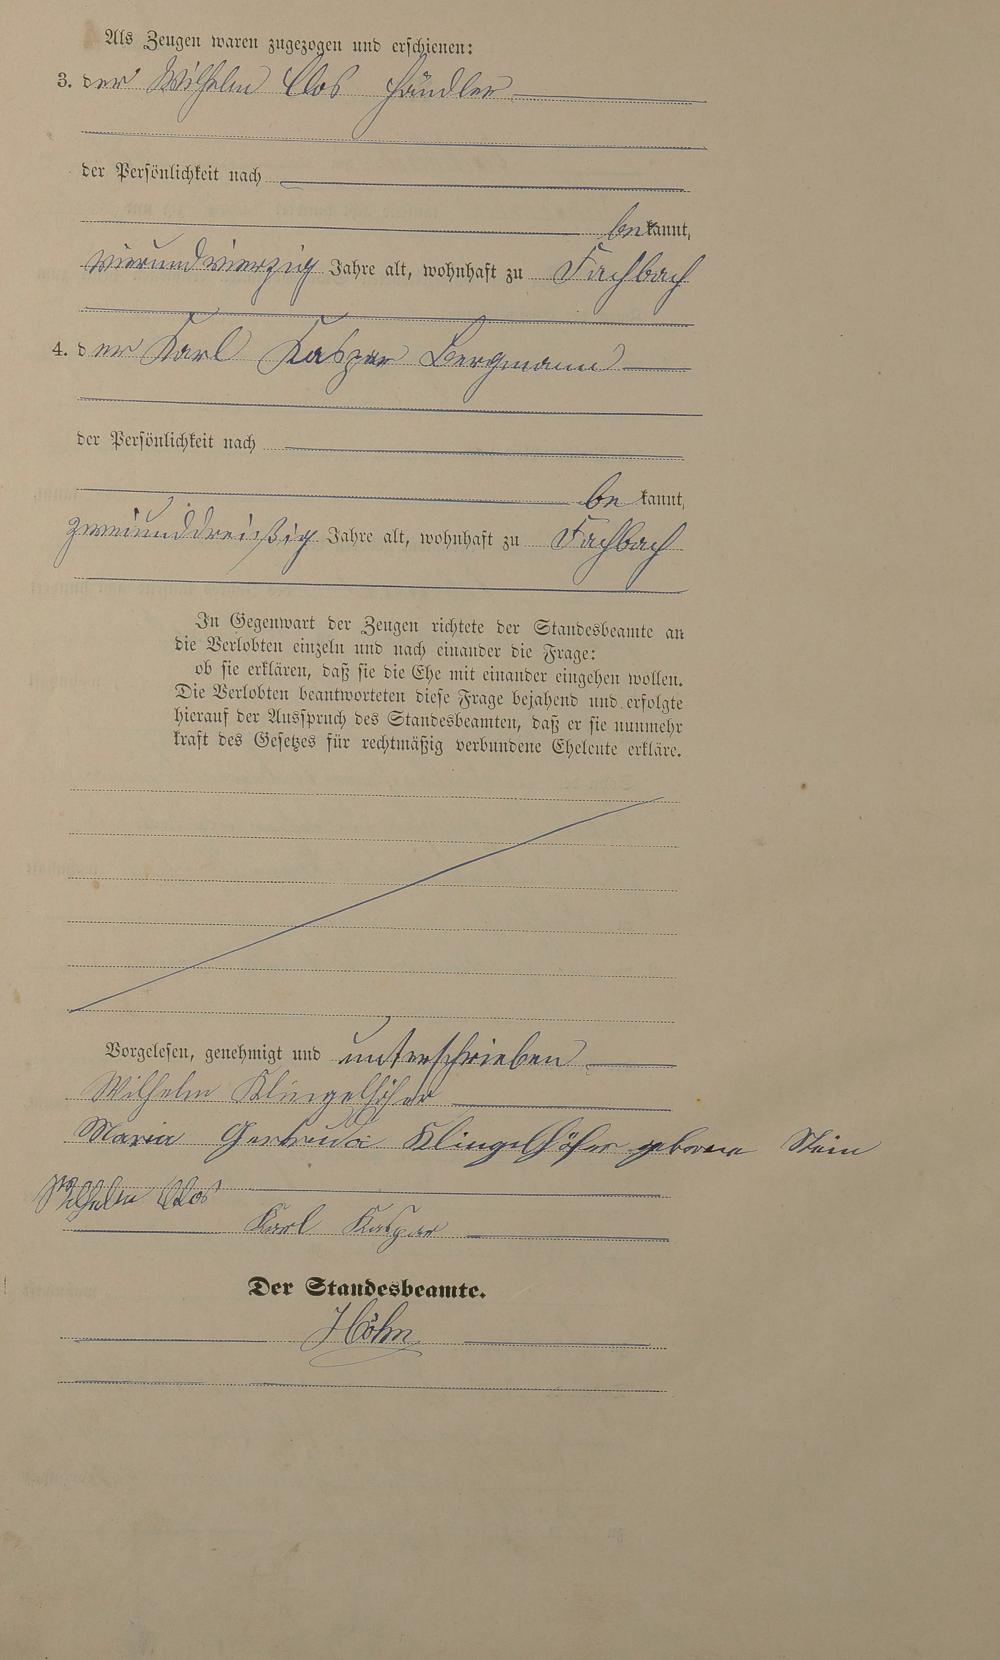 Als Zeugen waren zugezogen und erschienen:
3. der Wilhelm Clos Händler
der Persönlichkeit nach
be kannt,
vierundvierzig Jahre alt, wohnhaft zu Fachbach
4. der Karl Kaspar Bergmann
der Persönlichkeit nach
be kannt,
zweiunddreißig Jahre alt, wohnhaft zu Fachbach
In Gegenwart der Zeugen richtete der Standesbeamte an
die Verlobten einzeln und nach einander die Frage:
ob sie erklären, daß sie die Ehe mit einander eingehen wollen.
Die Verlobten beantworteten diese Frage bejahend und erfolgte
hierauf der Ausspruch des Standesbeamten, daß er sie nunmehr
kraft des Gesetzes für rechtmäßig verbundene Eheleute erkläre.
Vorgelesen, genehmigt und unterschrieben
Wilhelm Klingelhöfer
Maria Gertruda Klingelhöfer geborene Stein
Wilhelm Clos
Karl Kaspar
Der Standesbeamte.
Höhn